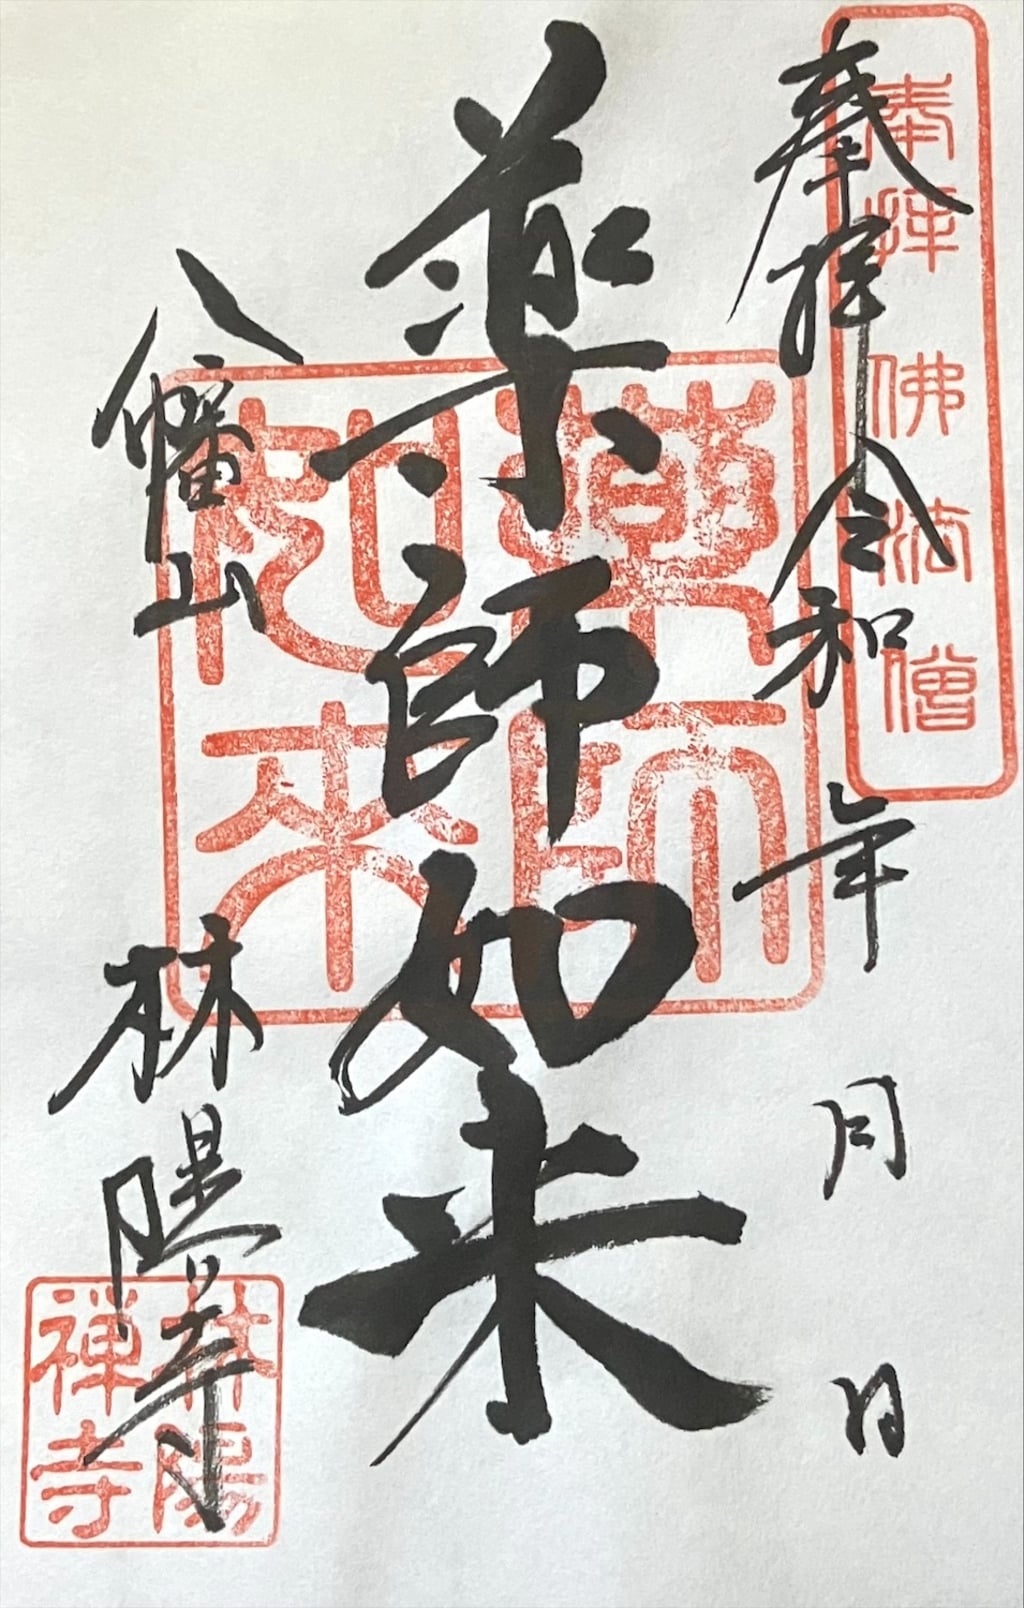 奉拝 令和 年 月 日
奉拝 佛法僧
薬師如来
藥師如来
八幡山 林陽寺
林陽禅寺